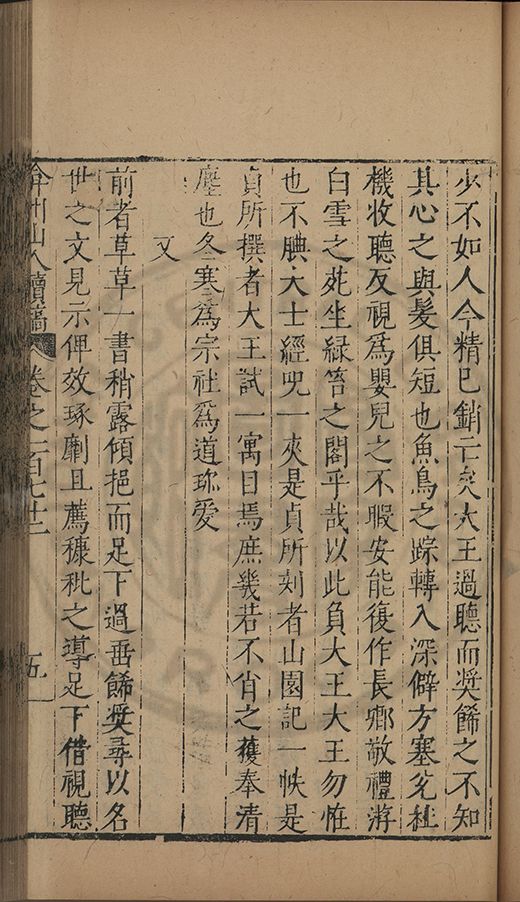 少不如人今精已銷亡矣大王過聽而奬餙之不知
其心之與髮俱短也魚鳥之踪轉入深僻方塞兊杜
機收聽反視爲嬰兒之不暇安能復作長卿敬禮游
白雪之苑坐緑筠之閣乎哉以此負大王大王勿恠
也不腆大士經呪一夾是貞所刻者山園記一帙是
貞所撰者大王試一寓目焉庶幾若不肖之獲奉清
塵也冬寒爲宗社爲道珎愛
又
前者草草一書稍露傾挹而足下過垂餙奬尋以名
世之文見示俾效琢劘且薦穅秕之導足下借視聽
弇州山人續稿 卷之一百七十二 五